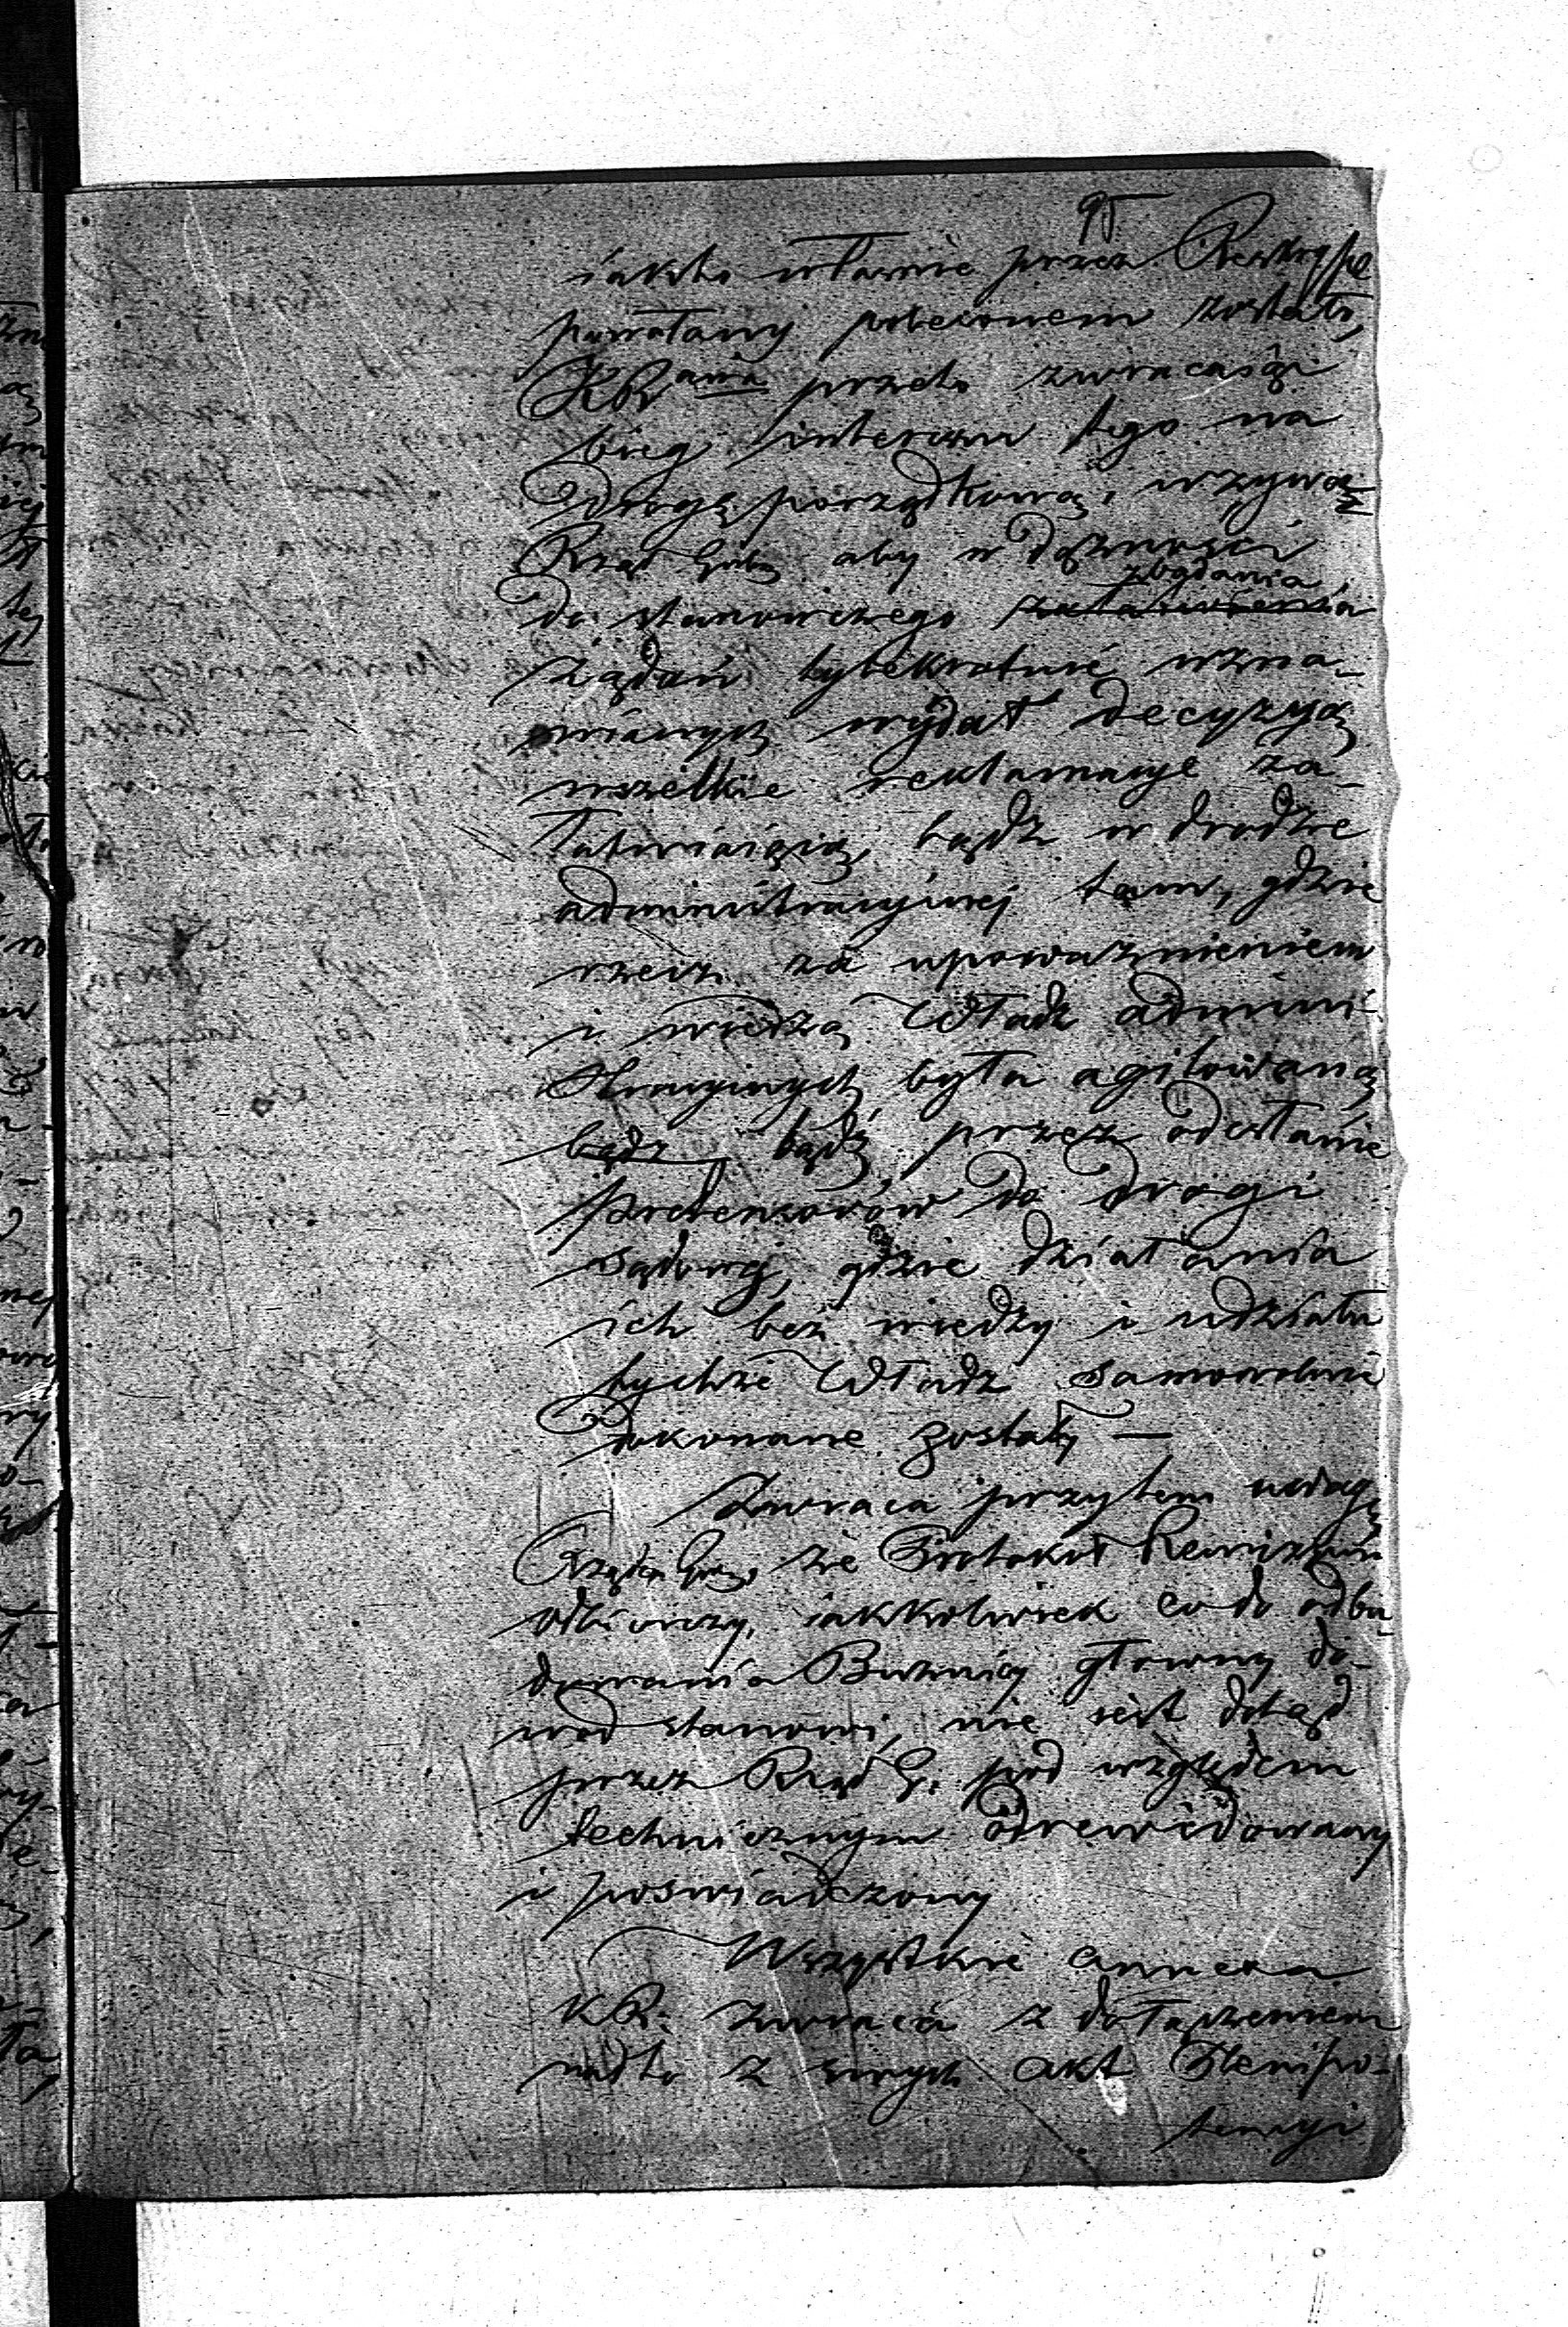 95
iakto właśnie przez Reskrypt
powołany poleconem zostało,
KR przeto zwracaiąc
bieg interesu tego na
drogę porządkową, wzywa
Rząd Gub. aby w dążności
do stanowczego zbadania
żądań tylekrotnie wzna-
wianych wydał decyzyą
wszelkie reklamacye za-
łatwiaiącą, bądź w drodze
administracyinej tam, gdzie
rzecz za upoważnieniem
i wiedzą Władz admini-
stracyinych była agitowaną
bądź bądź przez odesłanie
pretensorów do drogi
sądowej, gdzie działania
ich bez wiedzy i udziału
tychże Władz samowolnie
dokonane zostały —
Zwraca przytem uwagę
Rządu Gub. że Protokuł Rewizyino
odbiorczy, iakkolwiek co do odbu-
dowania Bużnicy główny do-
wod stanowi, nie iest dotąd
przez Rząd G. pod względem
technicznym odrewidowany
i poświadczony
Wszystkie annexa
KR. zwraca z dołączeniem
nadto z swych akt Plenipo-
tencyi